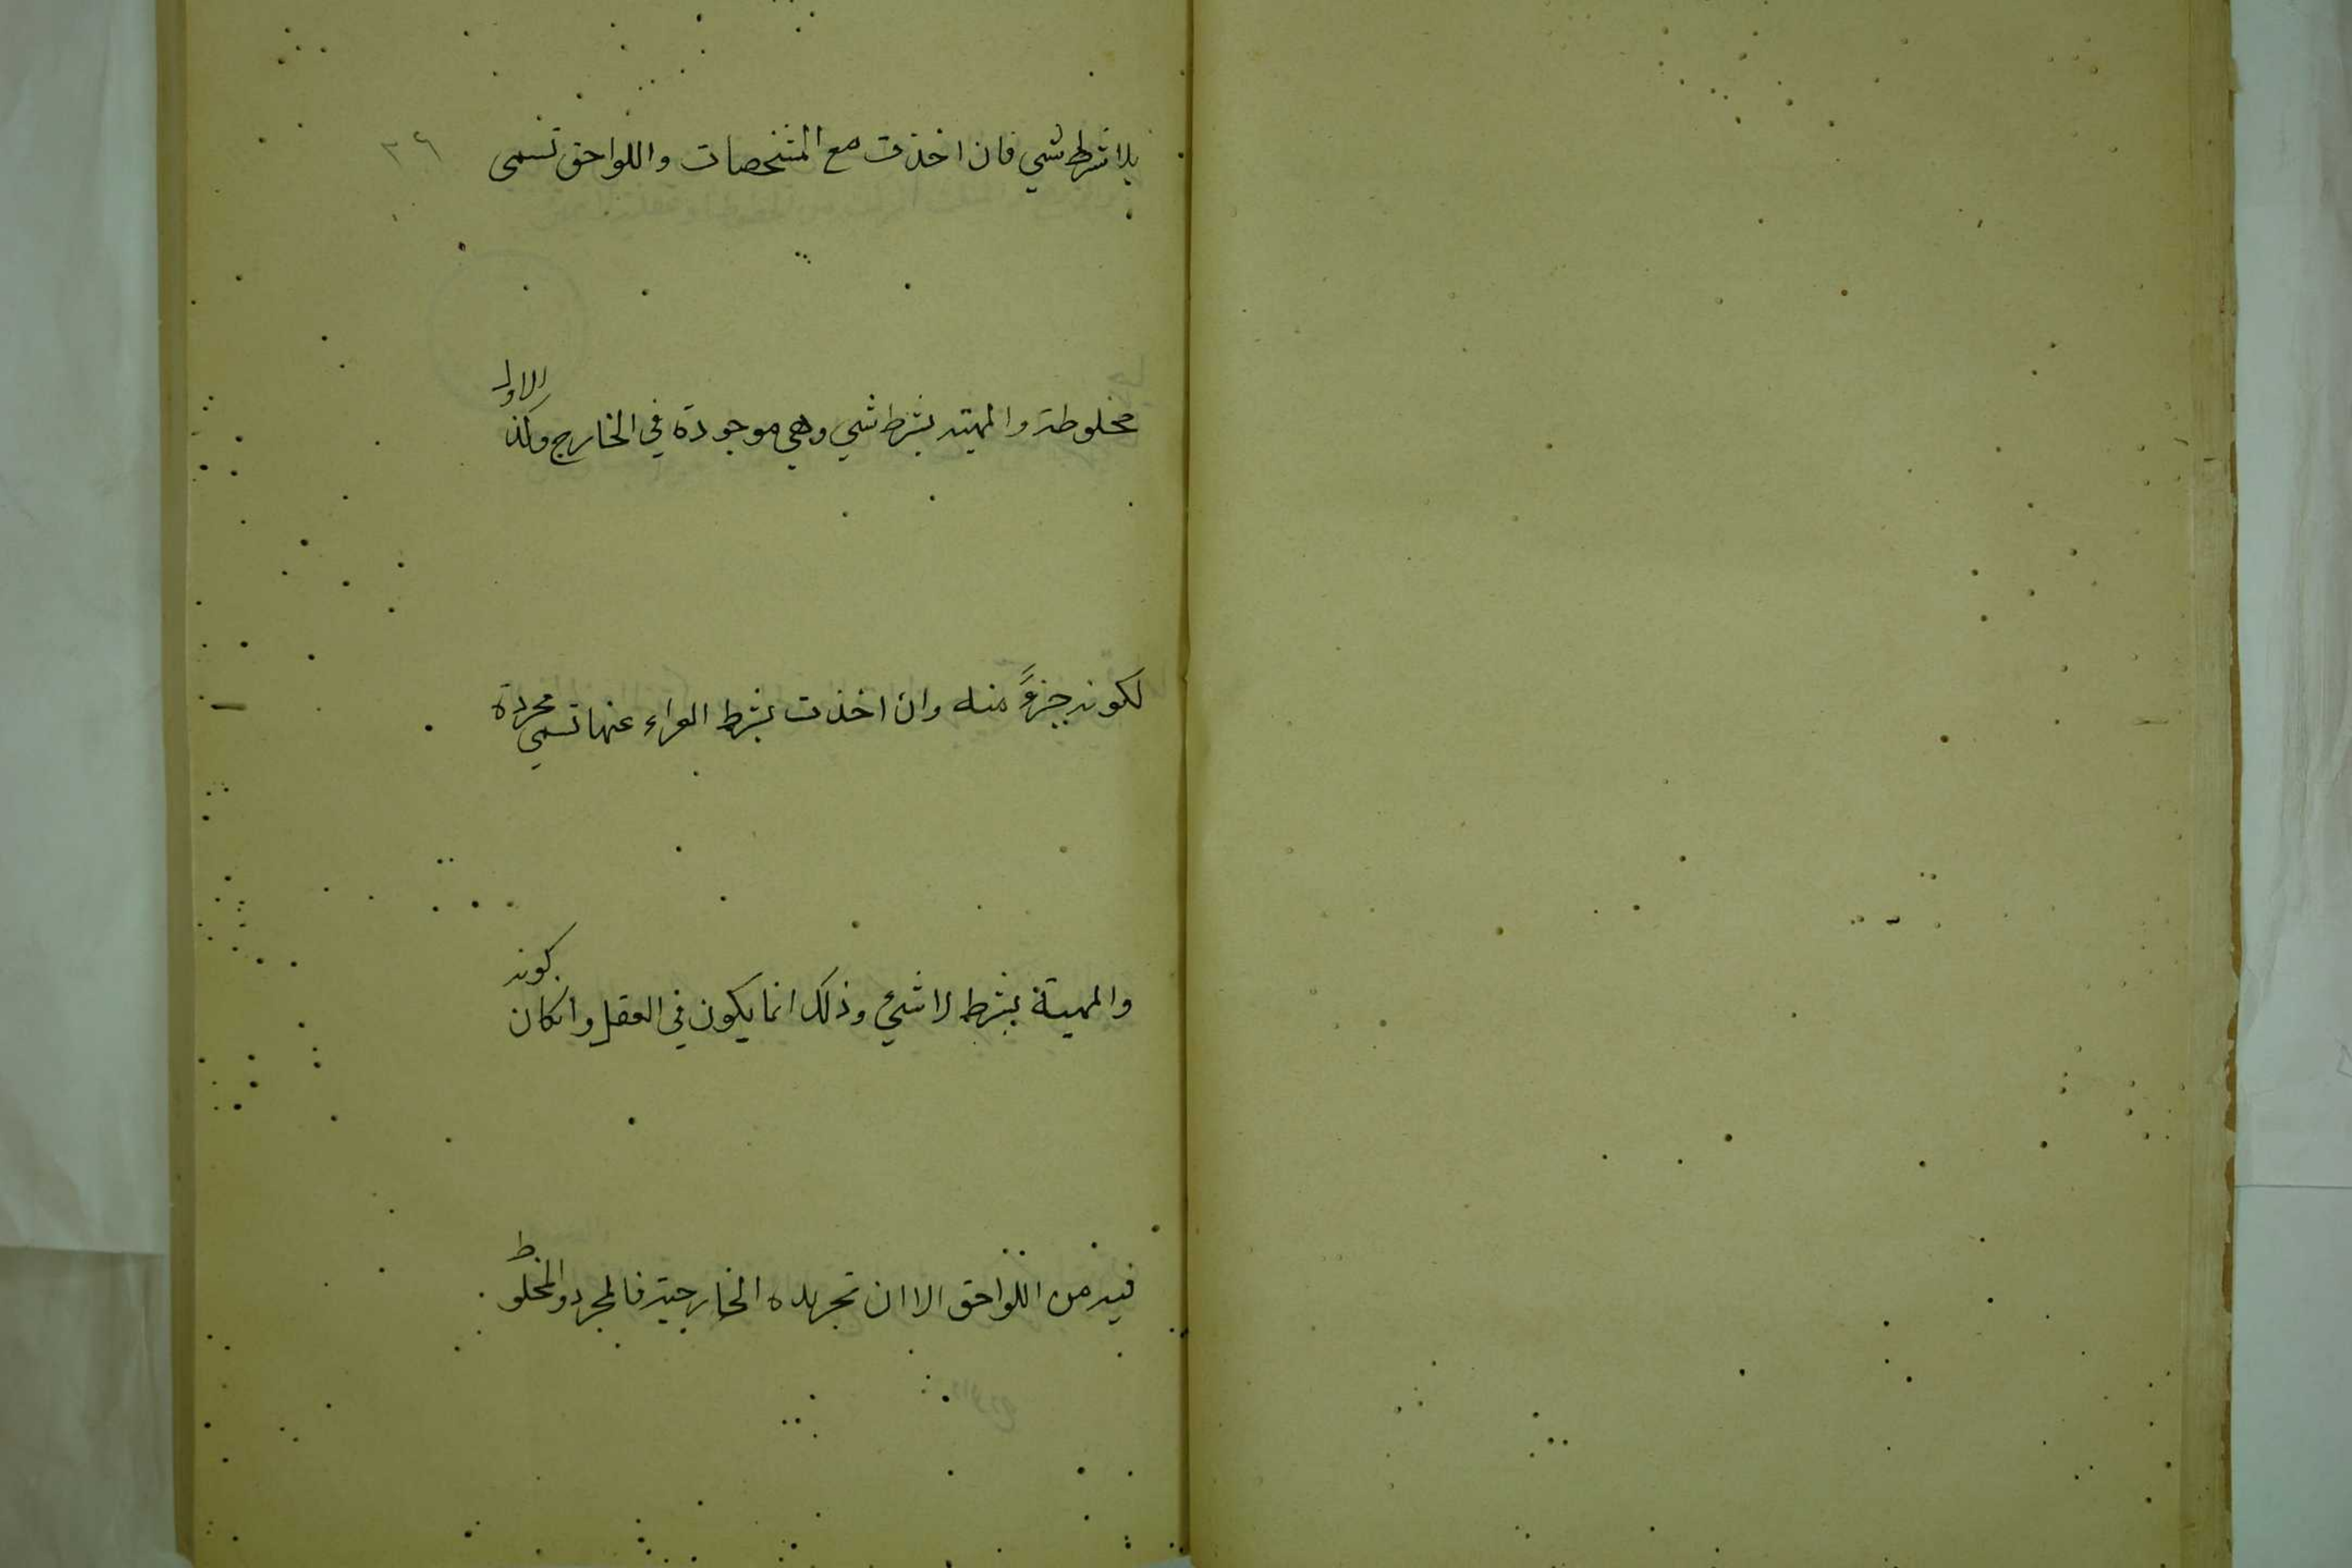 بلا شرط شي فان اخذت مع المشخصات واللواحق تسمى
مخلوطة والمهية بشرط شي وهي موجودة في الخارج وكذا الاول
لكونه جزءً منه وان اخذت بشرط العراء عنها تسمي مجردة
والمهية بشرط لا شئ وذلك انما يكون في العقل وانكان كونه
فيه من اللواحق الا ان تجريده الخارجية فالمجرد والمخلوط